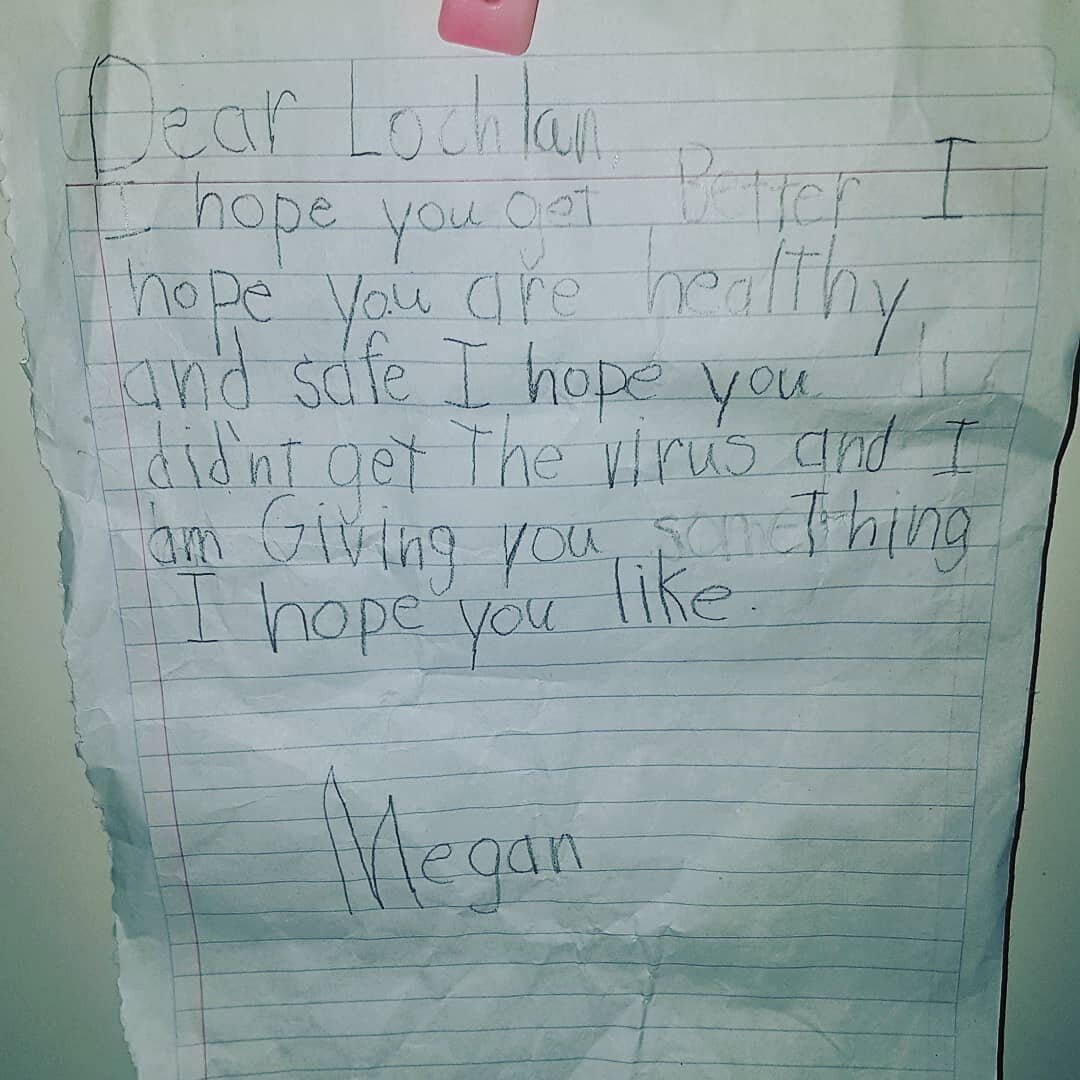 Dear Lochlan
I hope you get Better I
hope you are healthy
and safe I hope you
did'nt get The virus and I
am Giving you someThing
I hope you like.
Megan